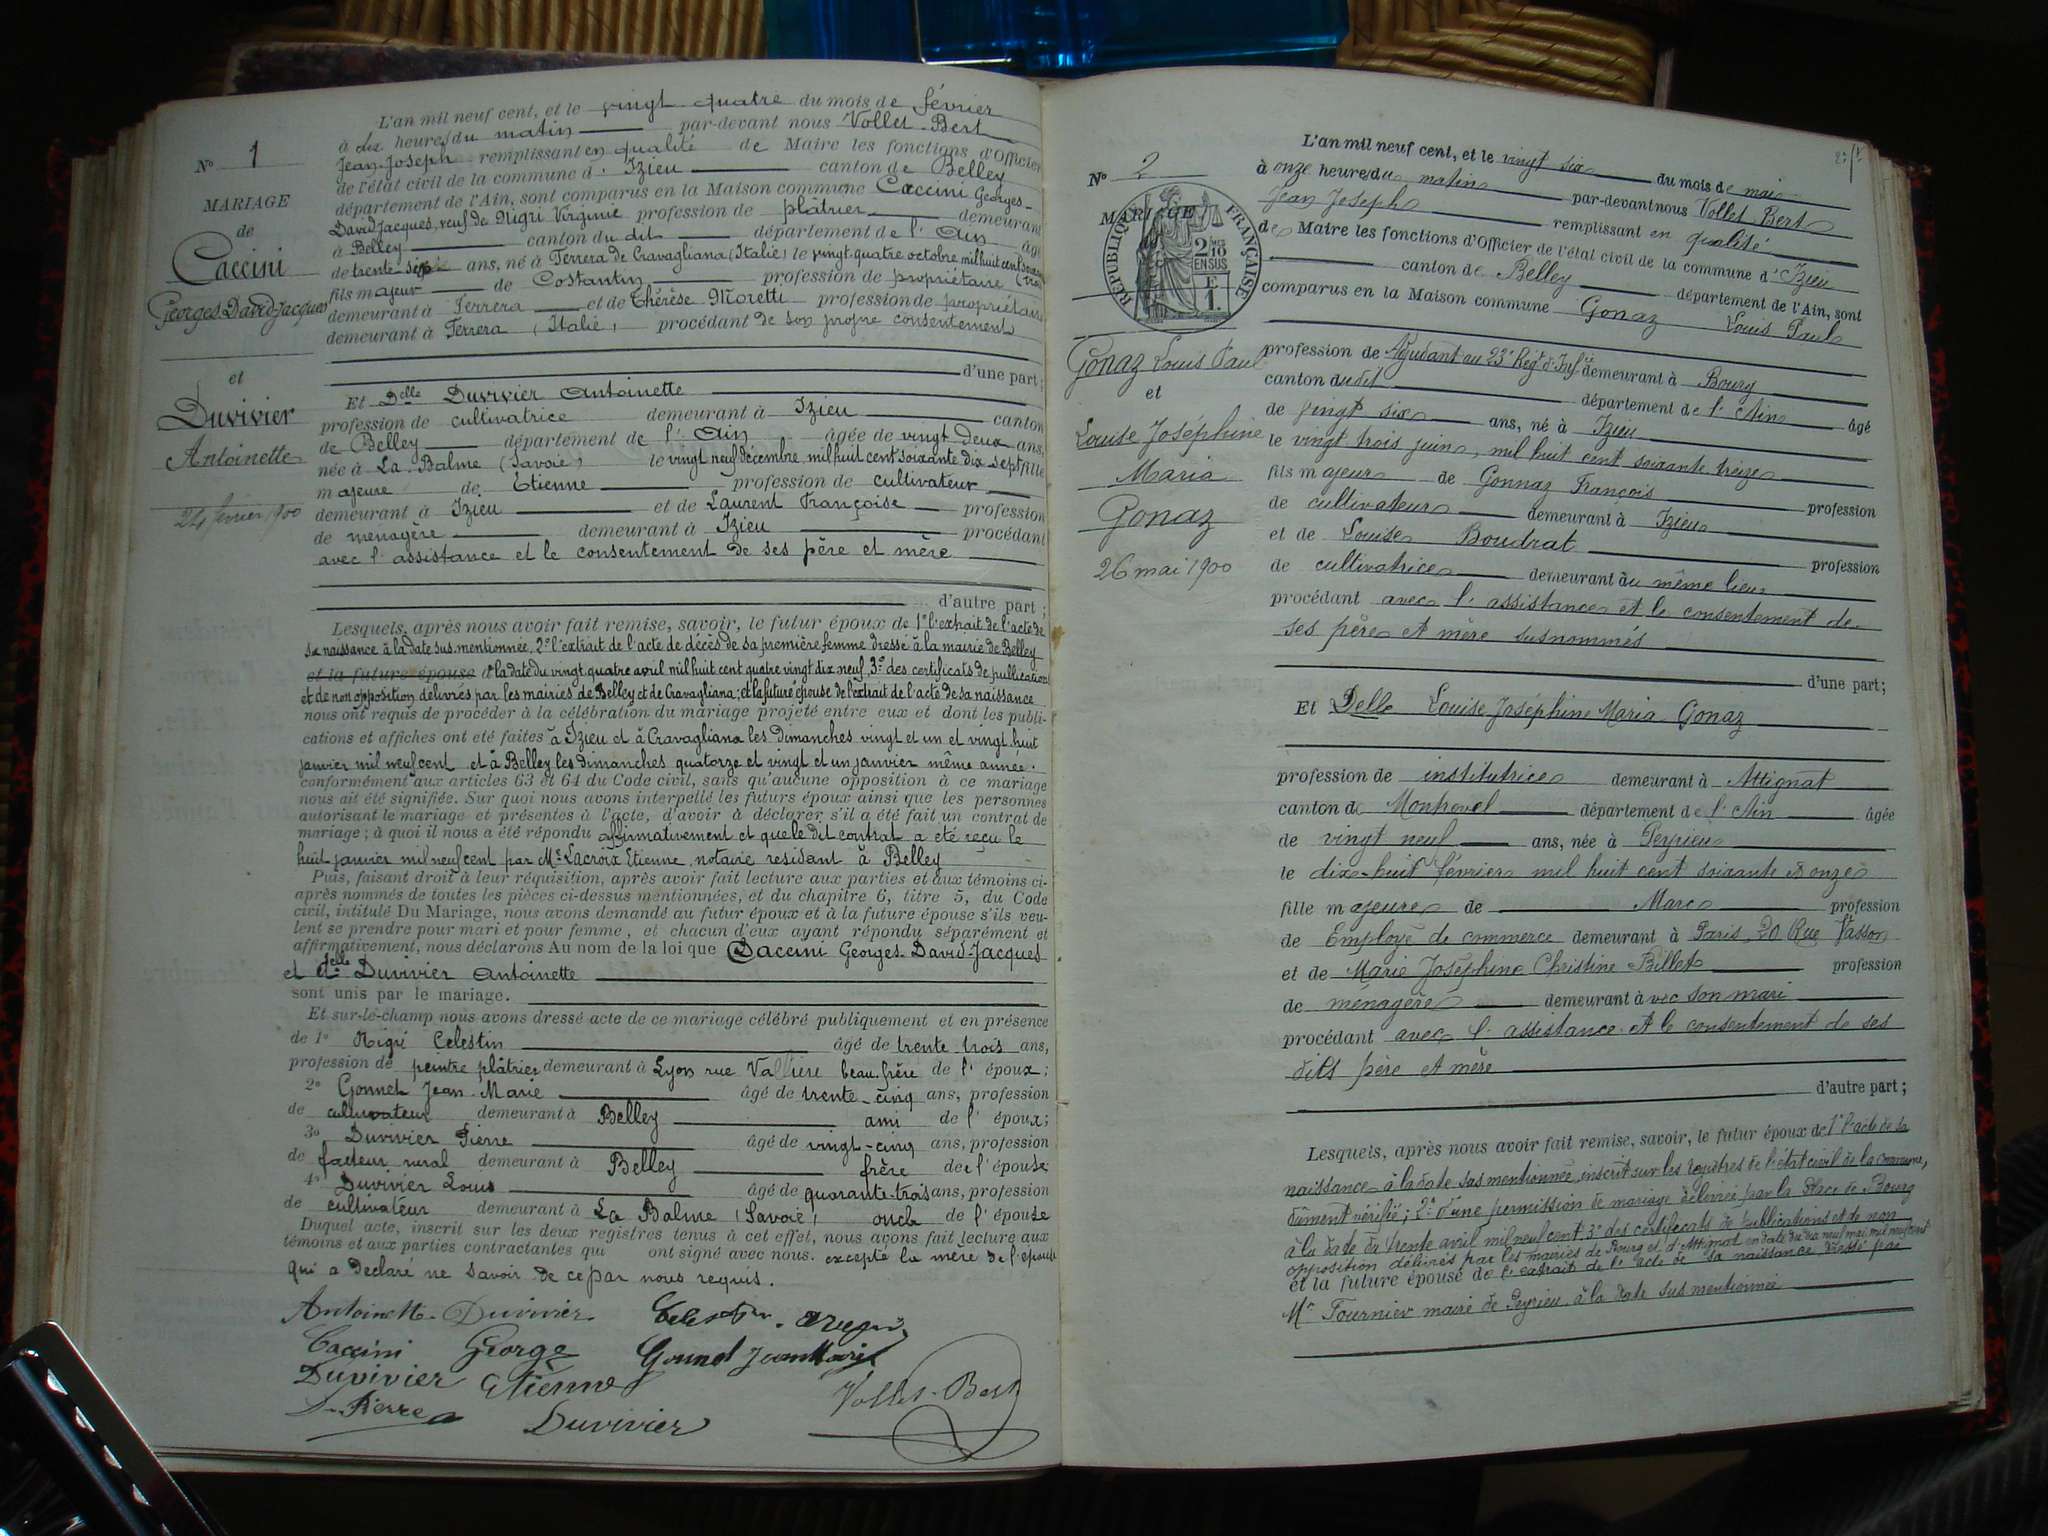 N° 1
MARIAGE
de
Caccini
Georges David Jacques
et
Duvivier
Antoinette
24 février 1900
L'an mil neuf cent, et le vingt quatre du mois de février
à dix heures du matin par-devant nous Vollet-Bert
Jean-Joseph remplissant en qualité de Maire les fonctions d'Officier
de l'état civil de la commune d'Izieu canton de Belley
département de l'Ain, sont comparus en la Maison commune Caccini Georges-
David Jacques, veuf de Nigri Virginie profession de plâtrier demeurant
à Belley canton du dit département de l'Ain âgé
de trente-six ans, né à Ferrera de Cravagliana (Italie) le vingt quatre octobre mil huit cent soixante trois
fils majeur de Costantin profession de propriétaire
demeurant à Ferrera et de Thérèse Moretti profession de propriétaire
demeurant à Ferrera (Italie) procédant de son propre consentement
d'une part;
Et Delle Duvivier Antoinette
profession de cultivatrice demeurant à Izieu canton
de Belley département de l'Ain âgée de vingt deux ans,
née à La Balme (Savoie) le vingt neuf décembre mil huit cent soixante dix sept fille
majeure de Etienne profession de cultivateur
demeurant à Izieu et de Laurent Françoise profession
de ménagère demeurant à Izieu procédant
avec l'assistance et le consentement de ses père et mère
d'autre part;
Lesquels, après nous avoir fait remise, savoir, le futur époux de 1° l'extrait de l'acte de
sa naissance à la date sus mentionnée, 2° l'extrait de l'acte de décès de sa première femme dressé à la mairie de Belley
et la future épouse à la date du vingt quatre avril mil huit cent quatre vingt dix neuf, 3° des certificats de publication
et de non opposition délivrés par les mairies de Belley et de Cravagliana; et la future épouse de l'extrait de l'acte de sa naissance
nous ont requis de procéder à la célébration du mariage projeté entre eux et dont les publi-
cations et affiches ont été faites à Izieu et à Cravagliana les dimanches vingt et un et vingt huit
janvier mil neuf cent et à Belley les dimanches quatorze et vingt et un janvier même année.
conformément aux articles 63 et 64 du Code civil, sans qu'aucune opposition à ce mariage
nous ait été signifiée. Sur quoi nous avons interpellé les futurs époux ainsi que les personnes
autorisant le mariage et présentes à l'acte, d'avoir à déclarer s'il a été fait un contrat de
mariage; à quoi il nous a été répondu affirmativement et que le dit contrat a été reçu le
huit janvier mil neuf cent par Me Lacroix Etienne, notaire residant à Belley
Puis, faisant droit à leur réquisition, après avoir fait lecture aux parties et aux témoins ci-
après nommés de toutes les pièces ci-dessus mentionnées, et du chapitre 6, titre 5, du Code
civil, intitulé Du Mariage, nous avons demandé au futur époux et à la future épouse s'ils veu-
lent se prendre pour mari et pour femme, et chacun d'eux ayant répondu séparément et
affirmativement, nous déclarons Au nom de la loi que Caccini Georges-David-Jacques
et delle Duvivier Antoinette
sont unis par le mariage.
Et sur-le-champ nous avons dressé acte de ce mariage célébré publiquement et en présence
de 1° Nigri Celestin âgé de trente-trois ans,
profession de peintre plâtrier demeurant à Lyon rue Vallière beau-frère de l'époux;
2° Gonnet Jean-Marie âgé de trente-cinq ans, profession
de cultivateur demeurant à Belley ami de l'époux;
3° Duvivier Pierre âgé de vingt-cinq ans, profession
de facteur rural demeurant à Belley frère de l'épouse
4° Duvivier Louis âgé de quarante-trois ans, profession
de cultivateur demeurant à La Balme (Savoie) oncle de l'épouse
Duquel acte, inscrit sur les deux registres tenus à cet effet, nous avons fait lecture aux
témoins et aux parties contractantes qui ont signé avec nous. excepté la mère de l'épouse
qui a declaré ne savoir de ce par nous requis.
Antoinette Duvivier
Caccini George Gonnet Jean Marie
Duvivier Etienne Vollet-Bert
Pierre Duvivier
N° 2
MARIAGE
RÉPUBLIQUE FRANÇAISE
2/10 EN SUS
Gonaz Louis Paul
et
Louise Joséphine
Maria
Gonaz
26 mai 1900
L'an mil neuf cent, et le vingt six du mois de mai
à onze heures du matin par-devant nous Vollet-Bert
Jean Joseph remplissant en qualité
de Maire les fonctions d'Officier de l'état civil de la commune d'Izieu
canton de Belley département de l'Ain, sont
comparus en la Maison commune Gonaz Louis Paul
profession de Adjudant au 23e Régt d'Infie demeurant à Bourg
canton dudit département de l'Ain âgé
de vingt six ans, né à Izieu
le vingt trois juin, mil huit cent soixante treize
fils majeur de Gonnaz François profession
de cultivateur demeurant à Izieu
et de Louise Boudrat profession
de cultivatrice demeurant au même lieu
procédant avec l'assistance et le consentement de
ses père et mère susnommés
d'une part;
Et Delle Louise Joséphine Maria Gonaz
profession de institutrice demeurant à Attignat
canton de Montrevel département de l'Ain âgée
de vingt neuf ans, née à Peyrieu
le dix-huit février mil huit cent soixante et onze
fille majeure de Marc profession
de Employé de commerce demeurant à Paris, 20 Rue
et de Marie Joséphine Christine Billet profession
de ménagère demeurant avec son mari
procédant avec l'assistance et le consentement de ses
dits père et mère
d'autre part;
Lesquels, après nous avoir fait remise, savoir, le futur époux de 1° l'acte de sa
naissance à la date sus mentionnée inscrit sur les registres de l'état civil de la commune,
dûment vérifié; 2° d'une permission de mariage délivrée par la Place de Bourg
à la date du trente avril mil neuf cent, 3° des certificats de publications et de non
opposition délivrés par les mairies de Bourg et d'Attignat en date du dix neuf mai mil neuf cent
et la future épouse de l'extrait de l'acte de sa naissance dressé par
Mr Fournier maire de Peyrieu à la date sus mentionnée